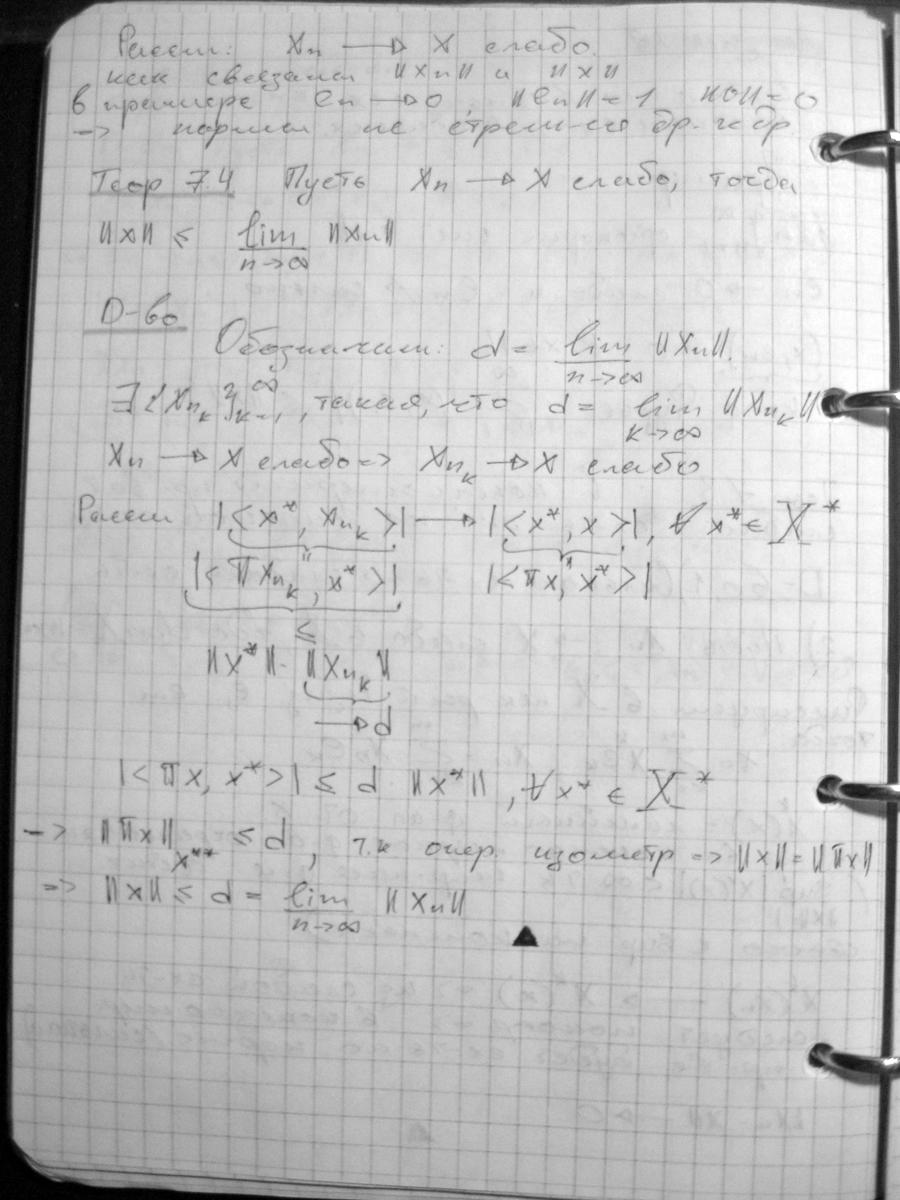 Рассм: Xn → X слабо.
как связаны ‖Xn‖ и ‖X‖
в примере en → 0 ‖en‖=1 ‖0‖=0
→ нормы не стрем-ся др. к др
Теор 7.4 Пусть Xn → X слабо, тогда
‖x‖ ≤ lim ‖Xn‖
n→∞
D-во
Обозначим: d = lim ‖Xn‖.
n→∞
∃ {Xnₖ}ₖ₌₁^∞, такая, что d = lim ‖Xnₖ‖
k→∞
Xn → X слабо => Xnₖ → X слабо
Рассм |<x*, xnₖ>| → |<x*, x>|, ∀ x* ∈ X*
" "
|<πxnₖ, x*>| |<πx, x*>|
≤
‖x*‖·‖Xnₖ‖
→ d
|<πx, x*>| ≤ d ‖x*‖, ∀ x* ∈ X*
→ ‖πx‖x** ≤ d, т.к опер. изометр => ‖x‖=‖πx‖
=> ‖x‖ ≤ d = lim ‖Xn‖
n→∞
▲